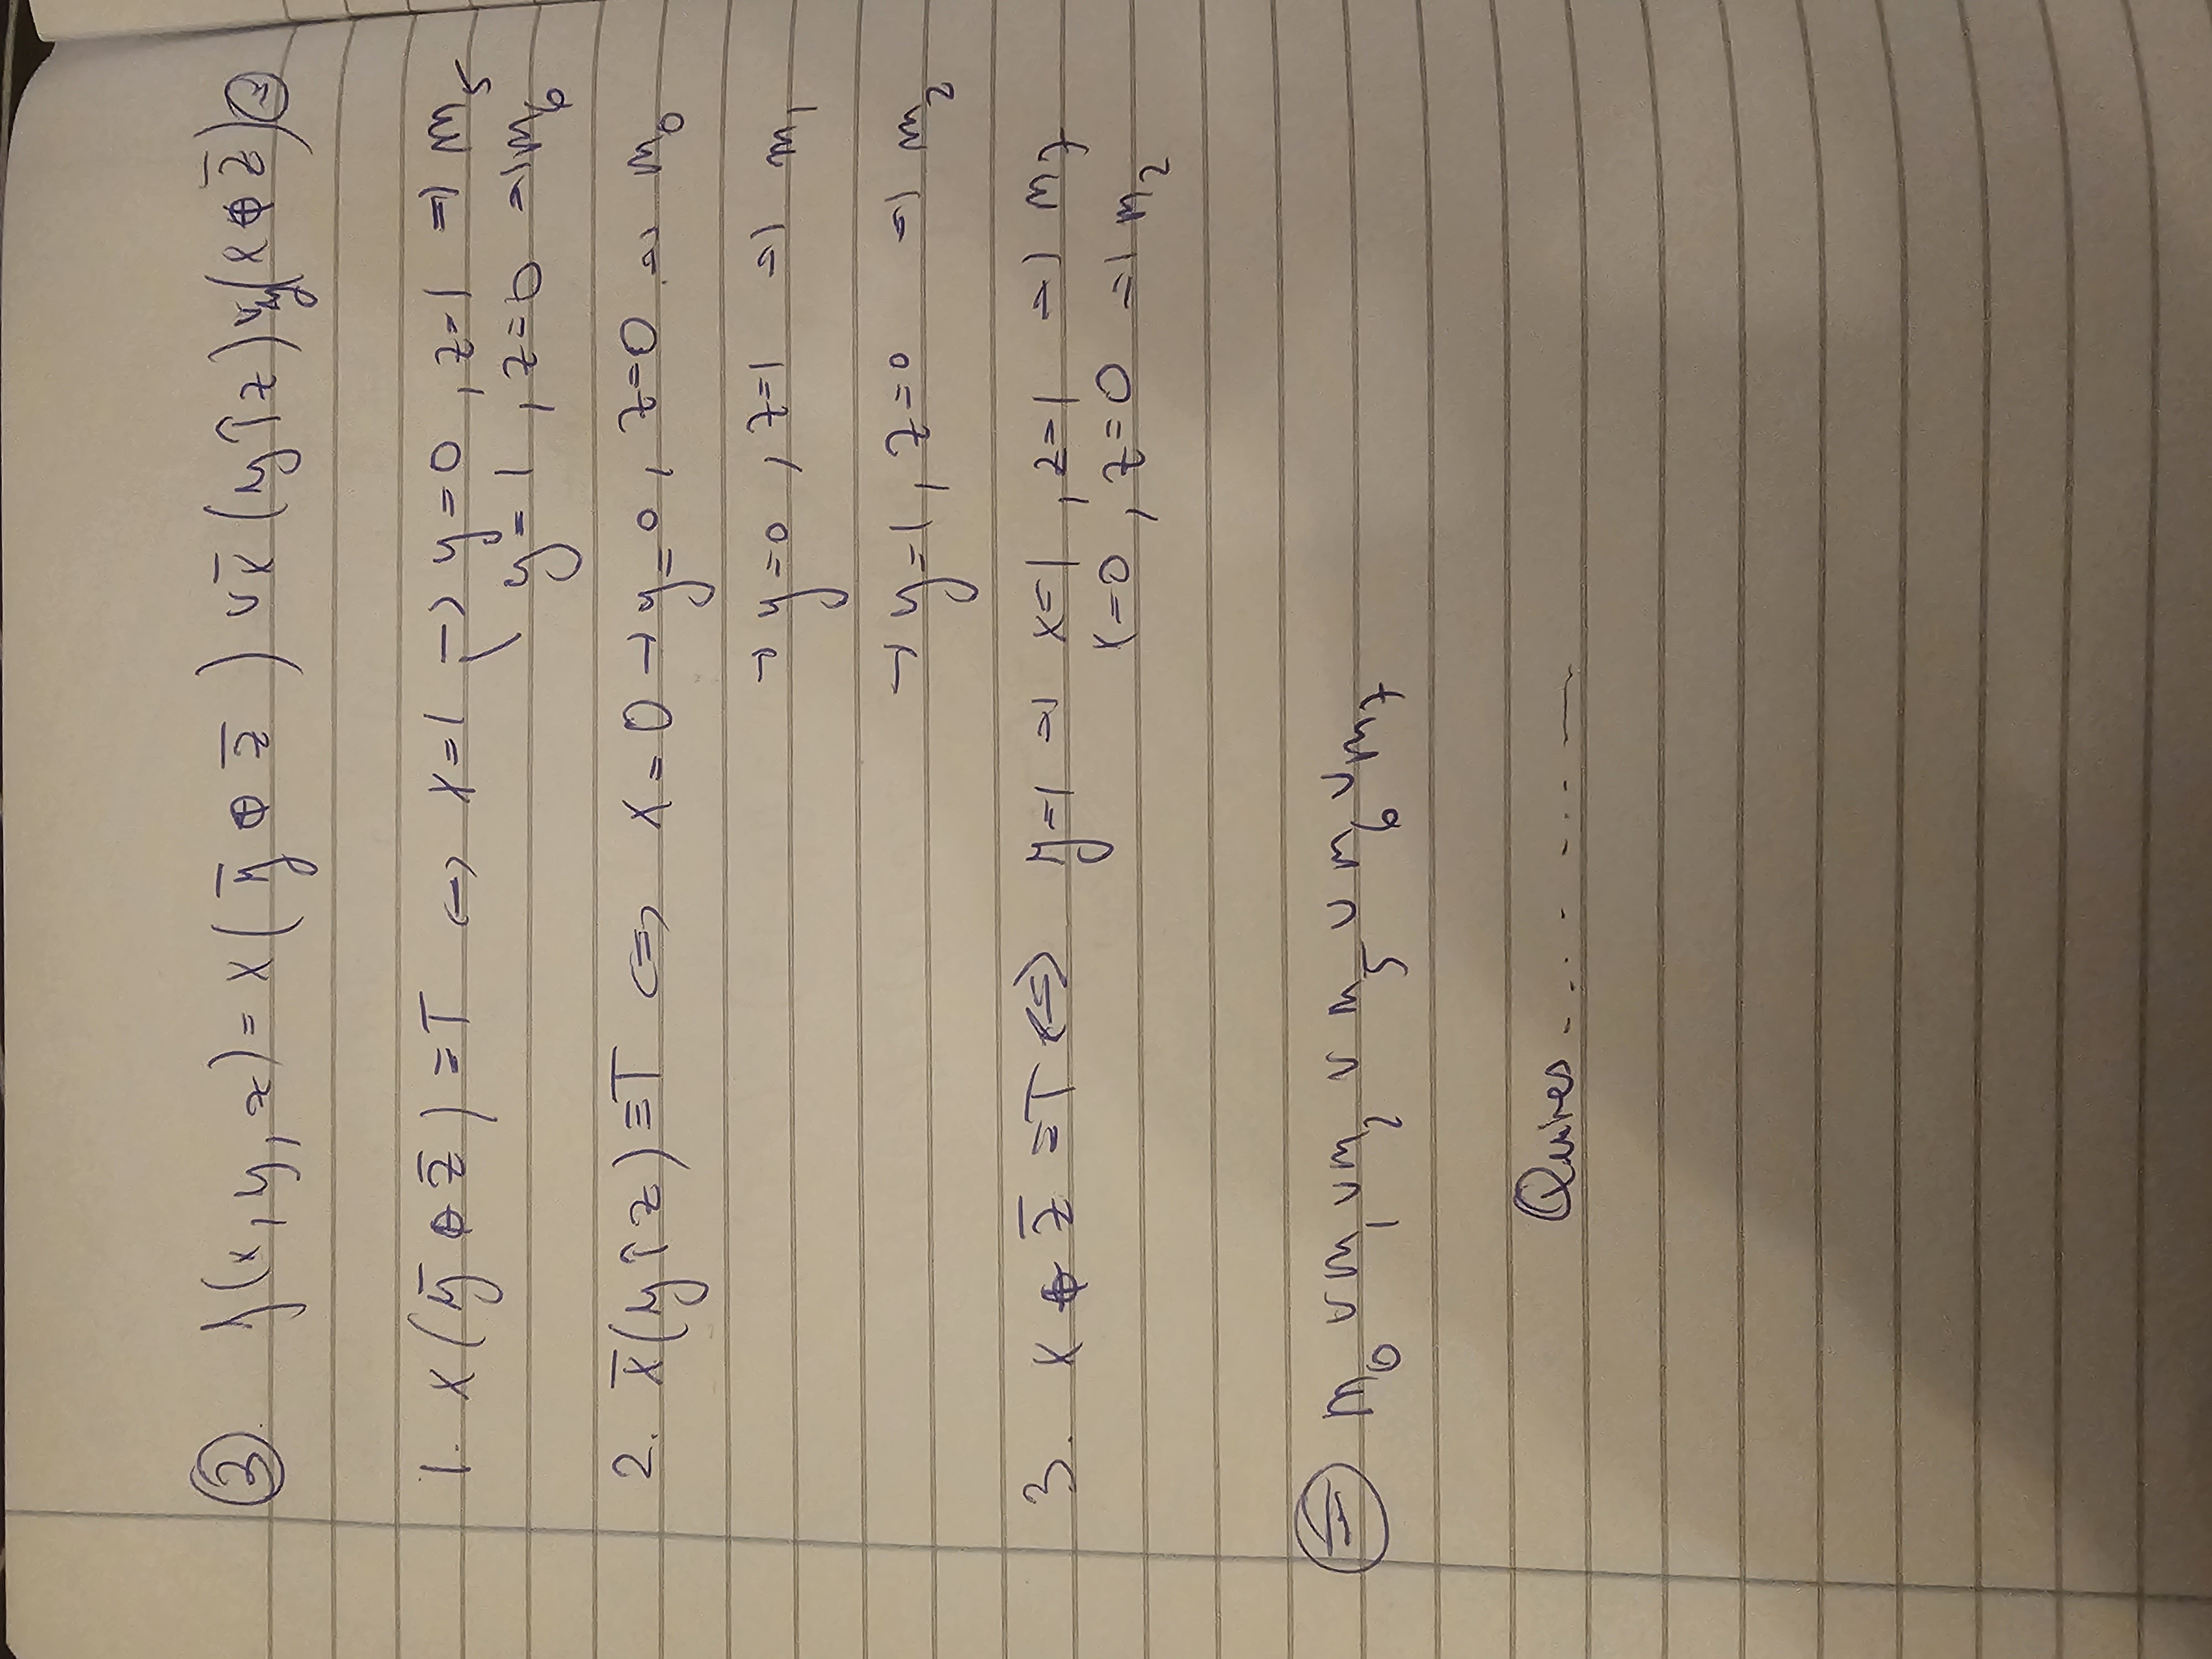 ③. f(x, y, z) = x(ȳ ⊕ z̄) ∨ x̄(y↑z) ∨ y(x ⊕ z̄) ⊜
1. x(ȳ ⊕ z̄) ≡ T ⇔ x=1 → y=0, z=1 ⇒ m₅
y=1, z=0 ⇒ m₆
2. x̄(y↑z) ≡ T ⇔ x=0 → y=0, z=0 ⇒ m₀
→ y=0, z=1 ⇒ m₁
→ y=1, z=0 ⇒ m₂
3. x ⊕ z̄ ≡ T ⇔ y=1 ⇒ x=1, z=1 ⇒ m₇
x=0, z=0 ⇒ m₂
⊜ m₀ ∨ m₁ ∨ m₂ ∨ m₅ ∨ m₆ ∨ m₇
Quines.... . . ... —